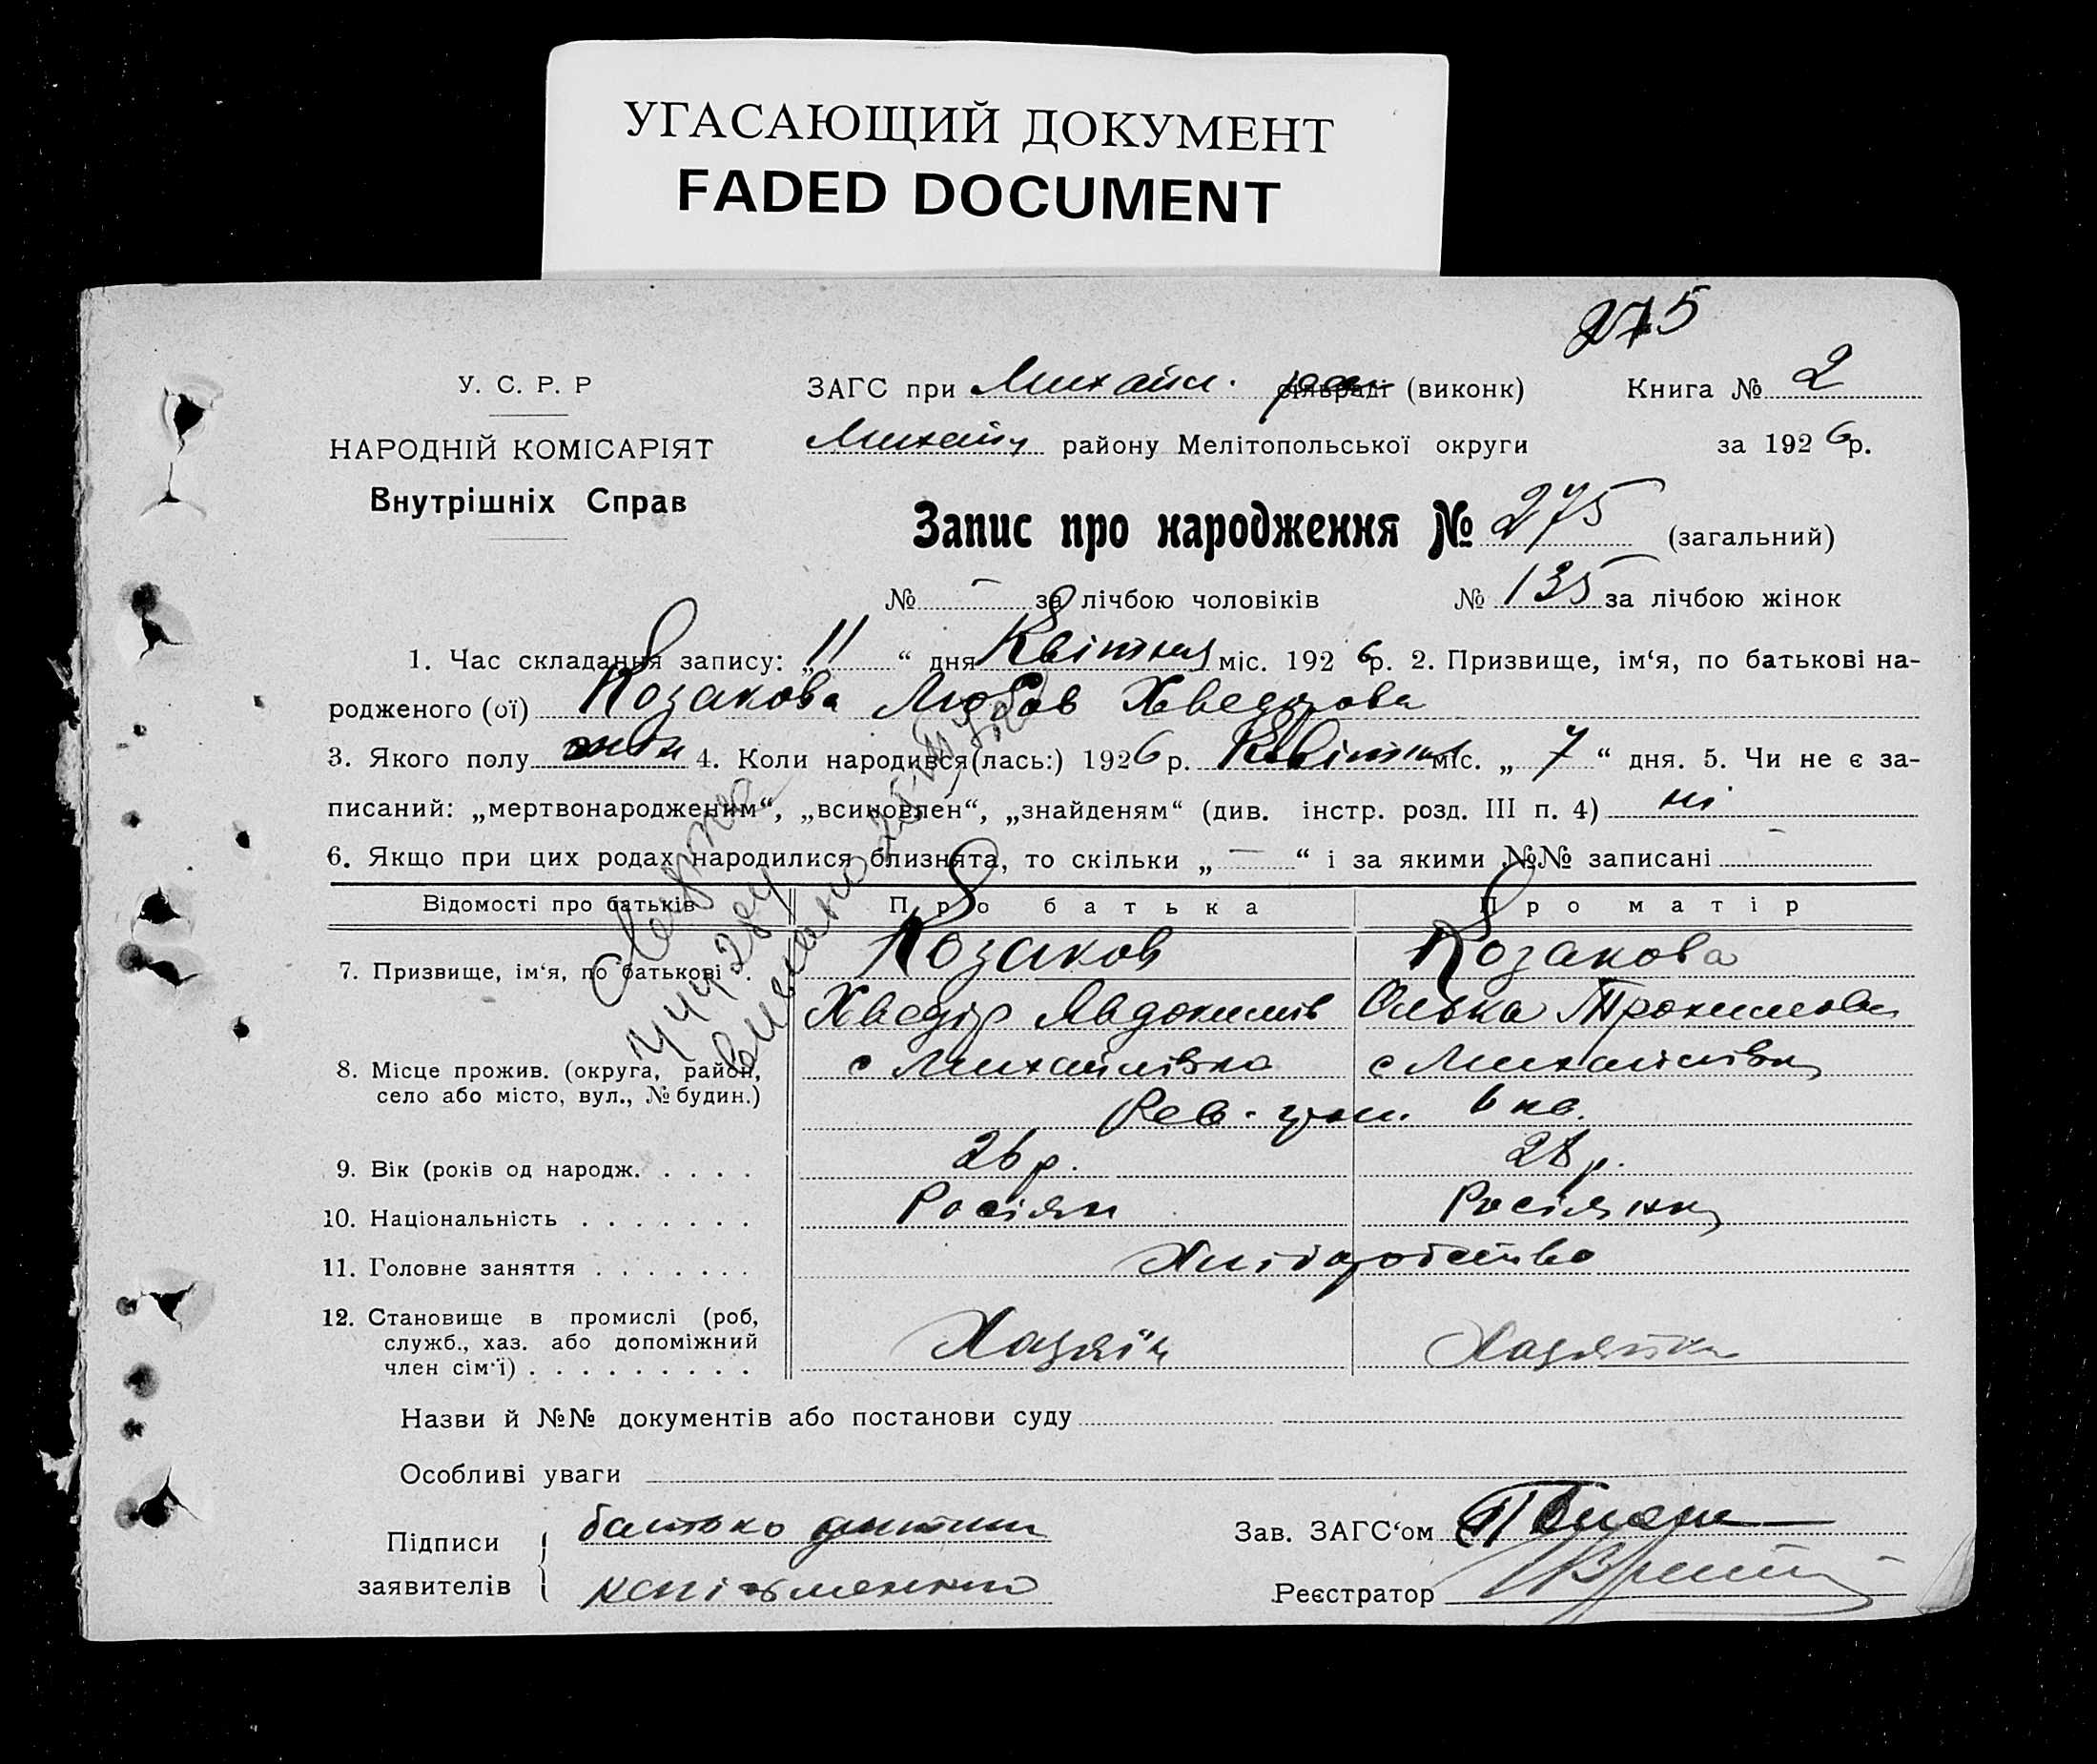 УГАСАЮЩИЙ ДОКУМЕНТ
FADED DOCUMENT
275
У. С. Р. Р
НАРОДНІЙ КОМІСАРІЯТ
Внутрішніх Справ
ЗАГС при Михайл. рай сільраді (виконк) Книга № 2
Михайл району Мелітопольської округи за 1926р.
Запис про народження № 275 (загальний)
№ — за лічбою чоловіків № 135 за лічбою жінок
1. Час складання запису: „11“ дня Квітня міс. 1926р. 2. Призвище, ім‘я, по батькові на-
родженого (ої) Козакова Любов Хведорова
3. Якого полу жін 4. Коли народився(лась:) 1926р. Квітня міс. „7“ дня. 5. Чи не є за-
писаний: „мертвонародженим“, „всиновлен“, „знайденям“ (див. інстр. розд. III п. 4) ні
6. Якщо при цих родах народилися близнята, то скільки „—“ і за якими №№ записані —
Відомості про батьків Про батька Про матір
7. Призвище, ім‘я, по батькові . Козаков Козакова
Хведір Явдокимів Олька Трохимова
8. Місце прожив. (округа, район,
село або місто, вул., № будин.)
с Михайлівка с Михайлівка
6 кв.
9. Вік (років од народж. . . . . 26 р. 28 р.
10. Національність . . . . . . . Росіян Росіянка
11. Головне заняття . . . . . . . Хліборобство
12. Становище в промислі (роб,
служб., хаз. або допоміжний
член сім‘ї) . . . . . . . . . Хазяїн Хазяйка
Назви й №№ документів або постанови суду
Особливі уваги
Підписи
заявителів
батько дитини
Зав. ЗАГС‘ом
Реєстратор